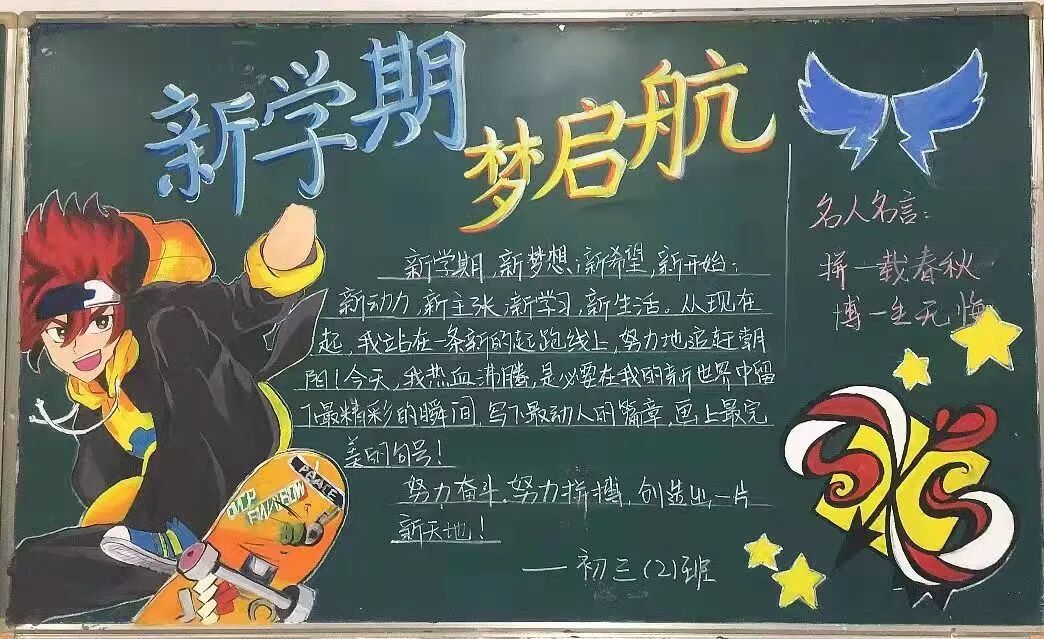 新学期
梦启航
新学期,新梦想,新希望,新开始;
新动力,新主张,新学习,新生活。从现在
起,我站在一条新的起跑线上,努力地追赶朝
阳!今天,我热血沸腾,是必要在我的新世界中留
下最精彩的瞬间,写下最动人的篇章,画上最完
美的句号!
努力奋斗,努力拼搏,创造出一片
新天地!
——初三(2)班
名人名言:
拼一载春秋
博一生无悔
PEACE